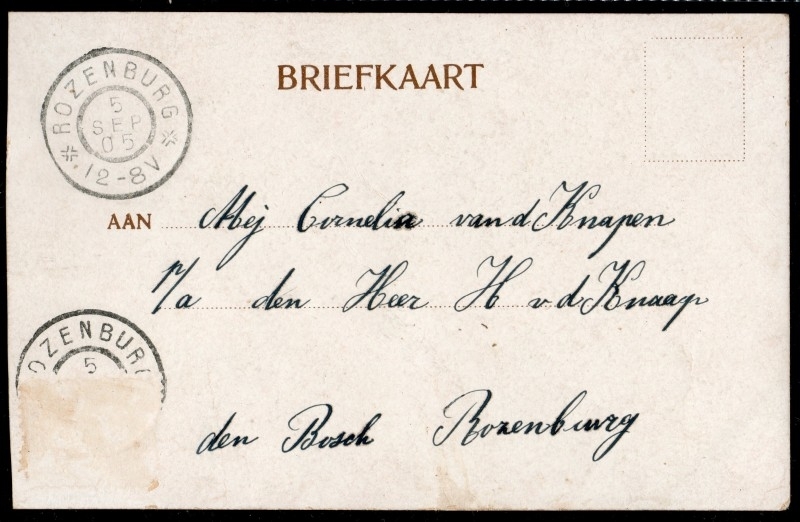 BRIEFKAART
ROZENBURG
5
SEP
05
12-8V
AAN Mej Cornelia van d Knapen
p/a den Heer H v d Knaap
OZENBURG
5
den Bosch Rozenburg